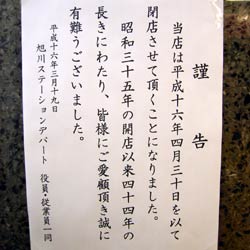 謹告
当店は平成十六年四月三十日を以て
閉店させて頂くことになりました。
昭和三十五年の開店以来四十四年の
長きにわたり、皆様にご愛顧頂き誠に
有難うございました。
平成十六年三月十九日
旭川ステーションデパート 役員・従業員一同